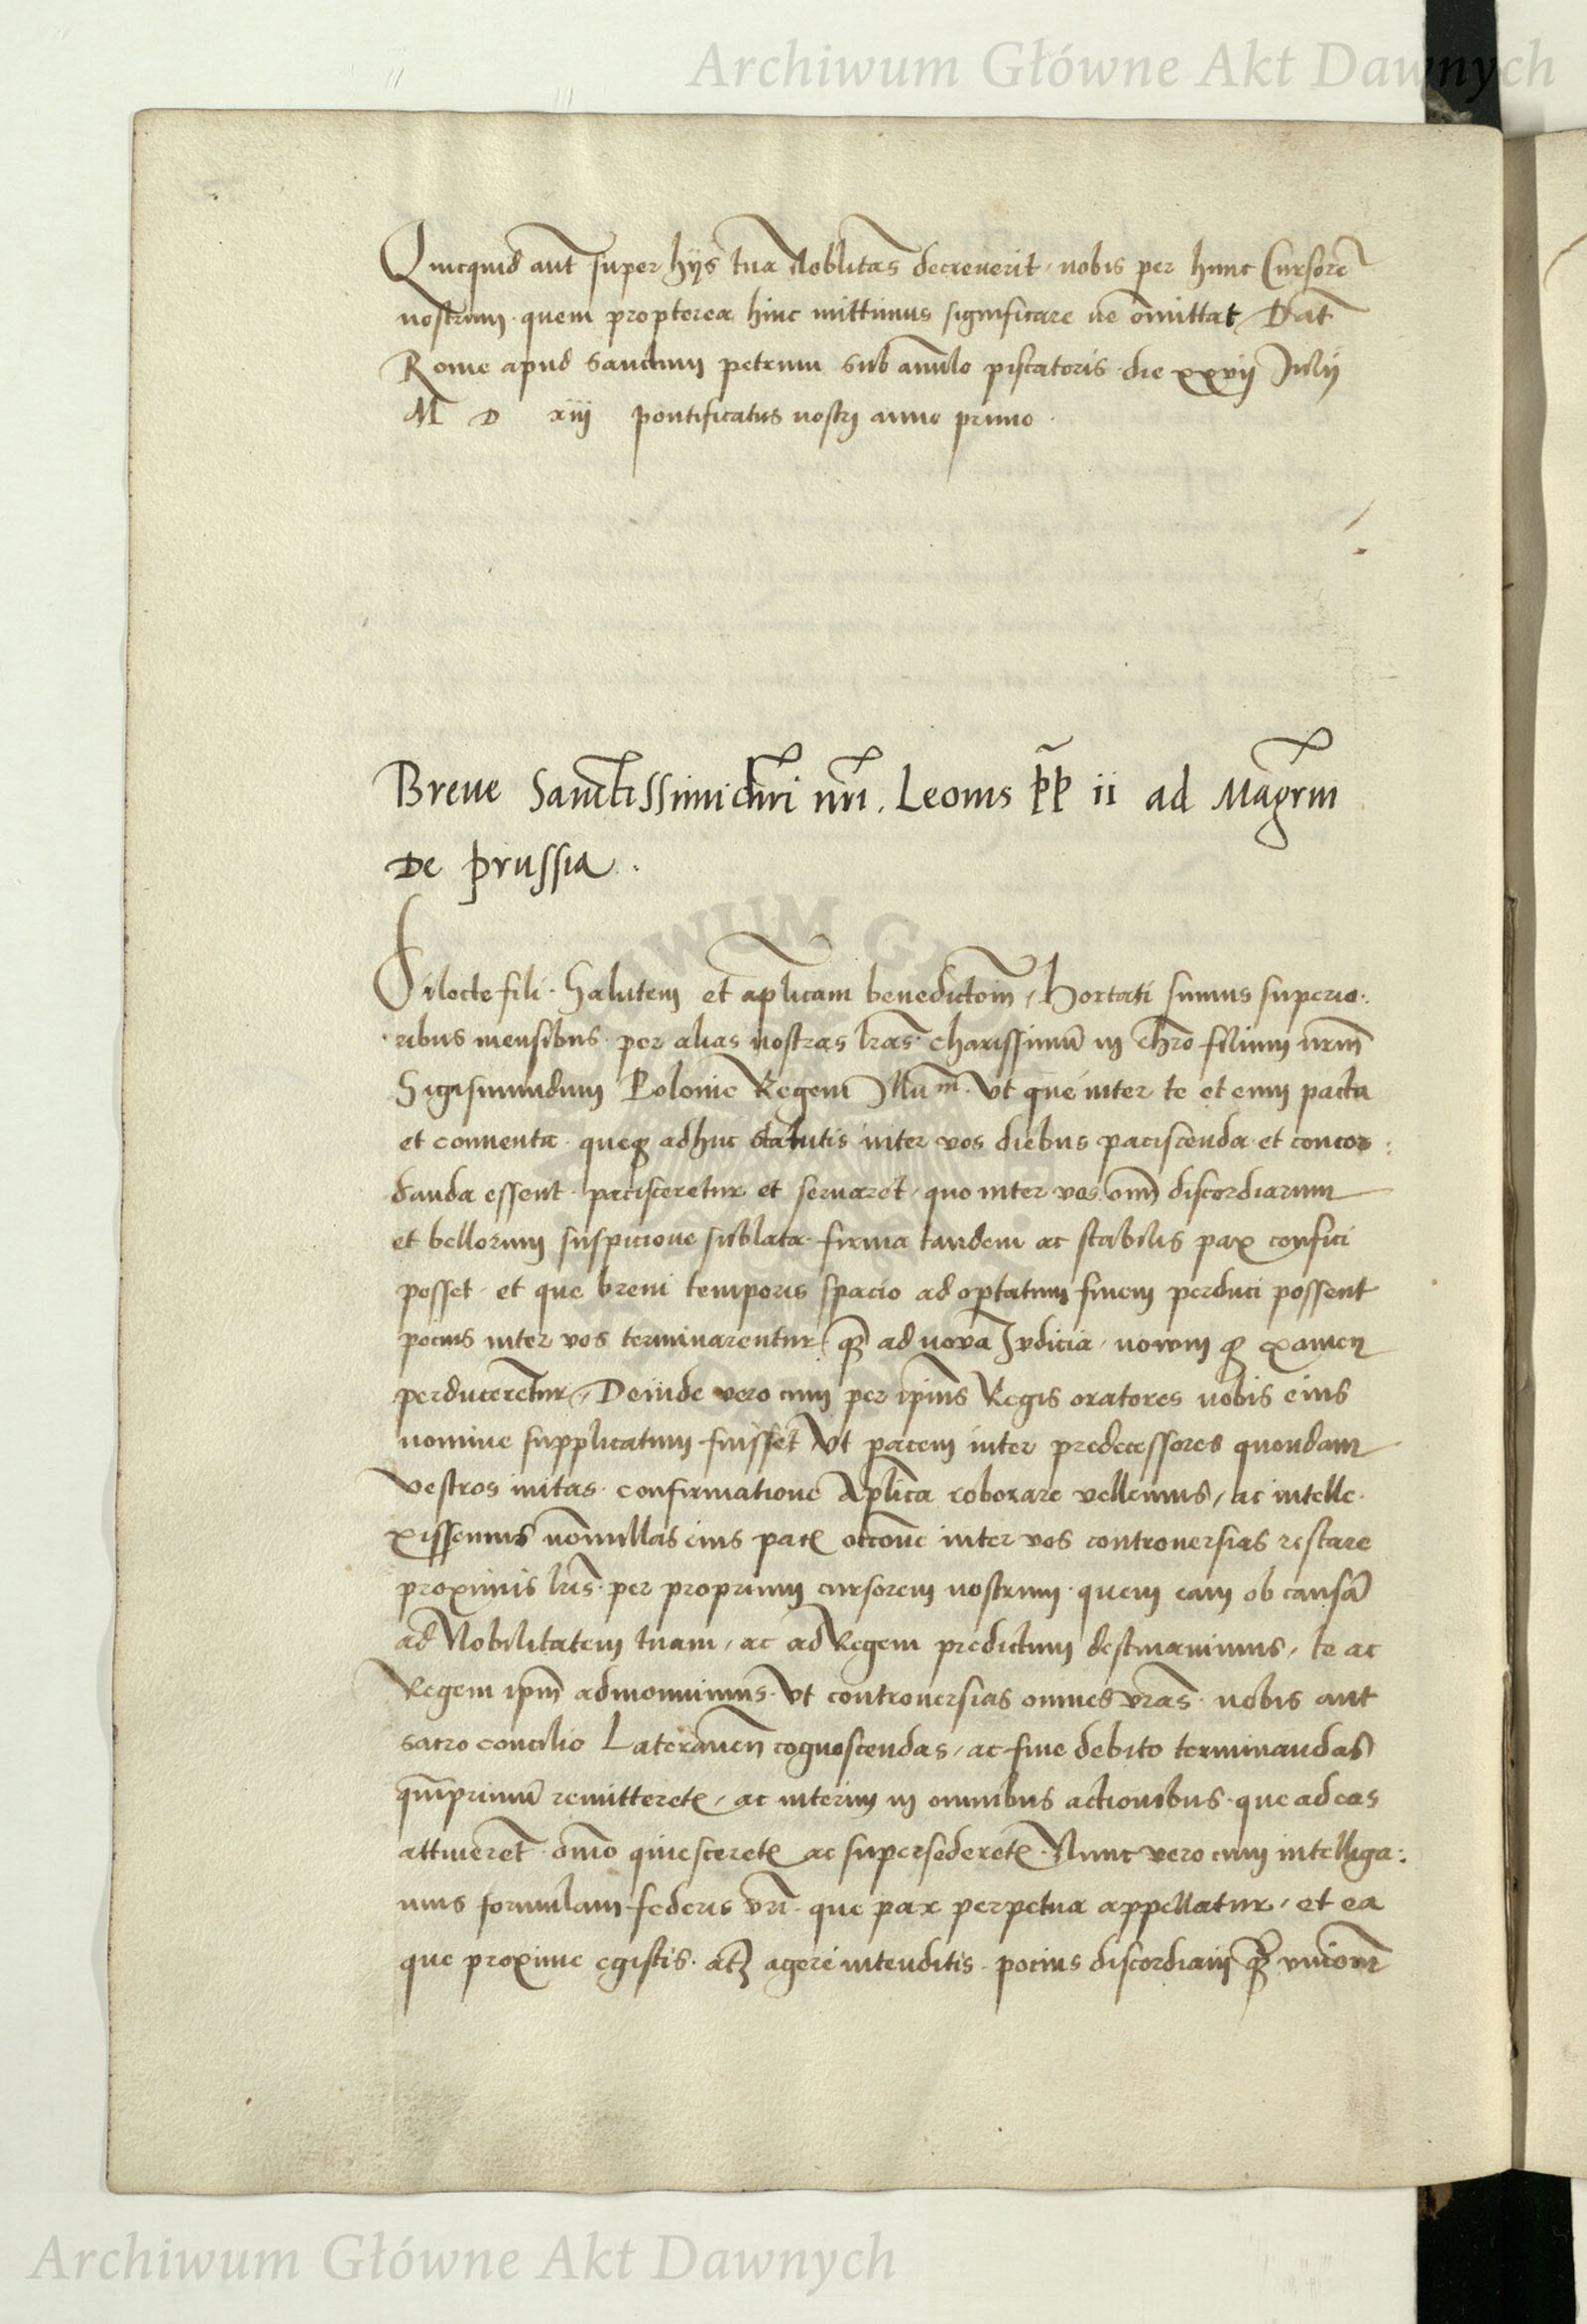 Archiwum Główne Akt Dawnych
Quicquid aut̃ super hijs tua Noblitas̃ decreverit, nobis per hunc Cursorẽ
nostrum. quem propterea hinc mittimus significare ne om̃ittat, Dat̃
Rome apud Sanctum petrum sub anulo piscatoris. die xxvij Julij
M D xiij pontificatus nostri anno primo.
Breve Sanctissimi dñi nr̃i. Leonis p̃p ii ad Magr̃m
De prussia.
Dilecte fili. Salutem et ap̃licam benedictoñm, Hortati sumus superio:
ribus mensibus. per alias nostras lr̃as. charissimũ in chr̃o filium nr̃m
Sigismundum Polonie Regem Illuᵐ. Vt que inter te et eum pacta
et conventa. queqz adhuc statutis inter vos diebus paciscenda et concor:
danda essent. pacisceretur et servaret, quo inter vos om̃i discordiarum
et bellorum suspicione sublata. firma tandem ac stabilis pax confici
posset. et que brevi temporis spacio ad optatum finem perduci possent
pocius inter vos terminarentur, q̃ ad nova Judicia, novum qz examen
perduceretur̃, Deinde vero cum per ip̃ius Regis oratores nobis eius
nomine supplicatum fuisset Vt pacem inter predecessores quondam
vestros initas. confirmatione Ap̃lica roborare vellemus, ac intelle.
xissemus nõnullas eius pacꝭ occõne inter vos controversias restare
proximis lr̃is. per proprium cursorem nostrum. quem eam ob causã
ad Nobilitatem tuam, ac ad Regem predictum destinavimus, te ac
Regem ip̃m admonuimus. Vt controversias omnes vr̃as. nobis aut
sacro concilio Lateraneñ cognoscendas, ac fine debito terminandas
qm̃primũ remitteretꝭ, ac interim in omnibus actionibus. que ad eas
attineret̃. om̃o quiesceretꝭ ac supersederetꝭ. Nunc vero cum intelliga:
mus formulam federis vr̃i. que pax perpetua appellatur, et ea
que proxime egistis. atqz agere intenditis. pocius discordiam q̃ unioñm
Archiwum Główne Akt Dawnych